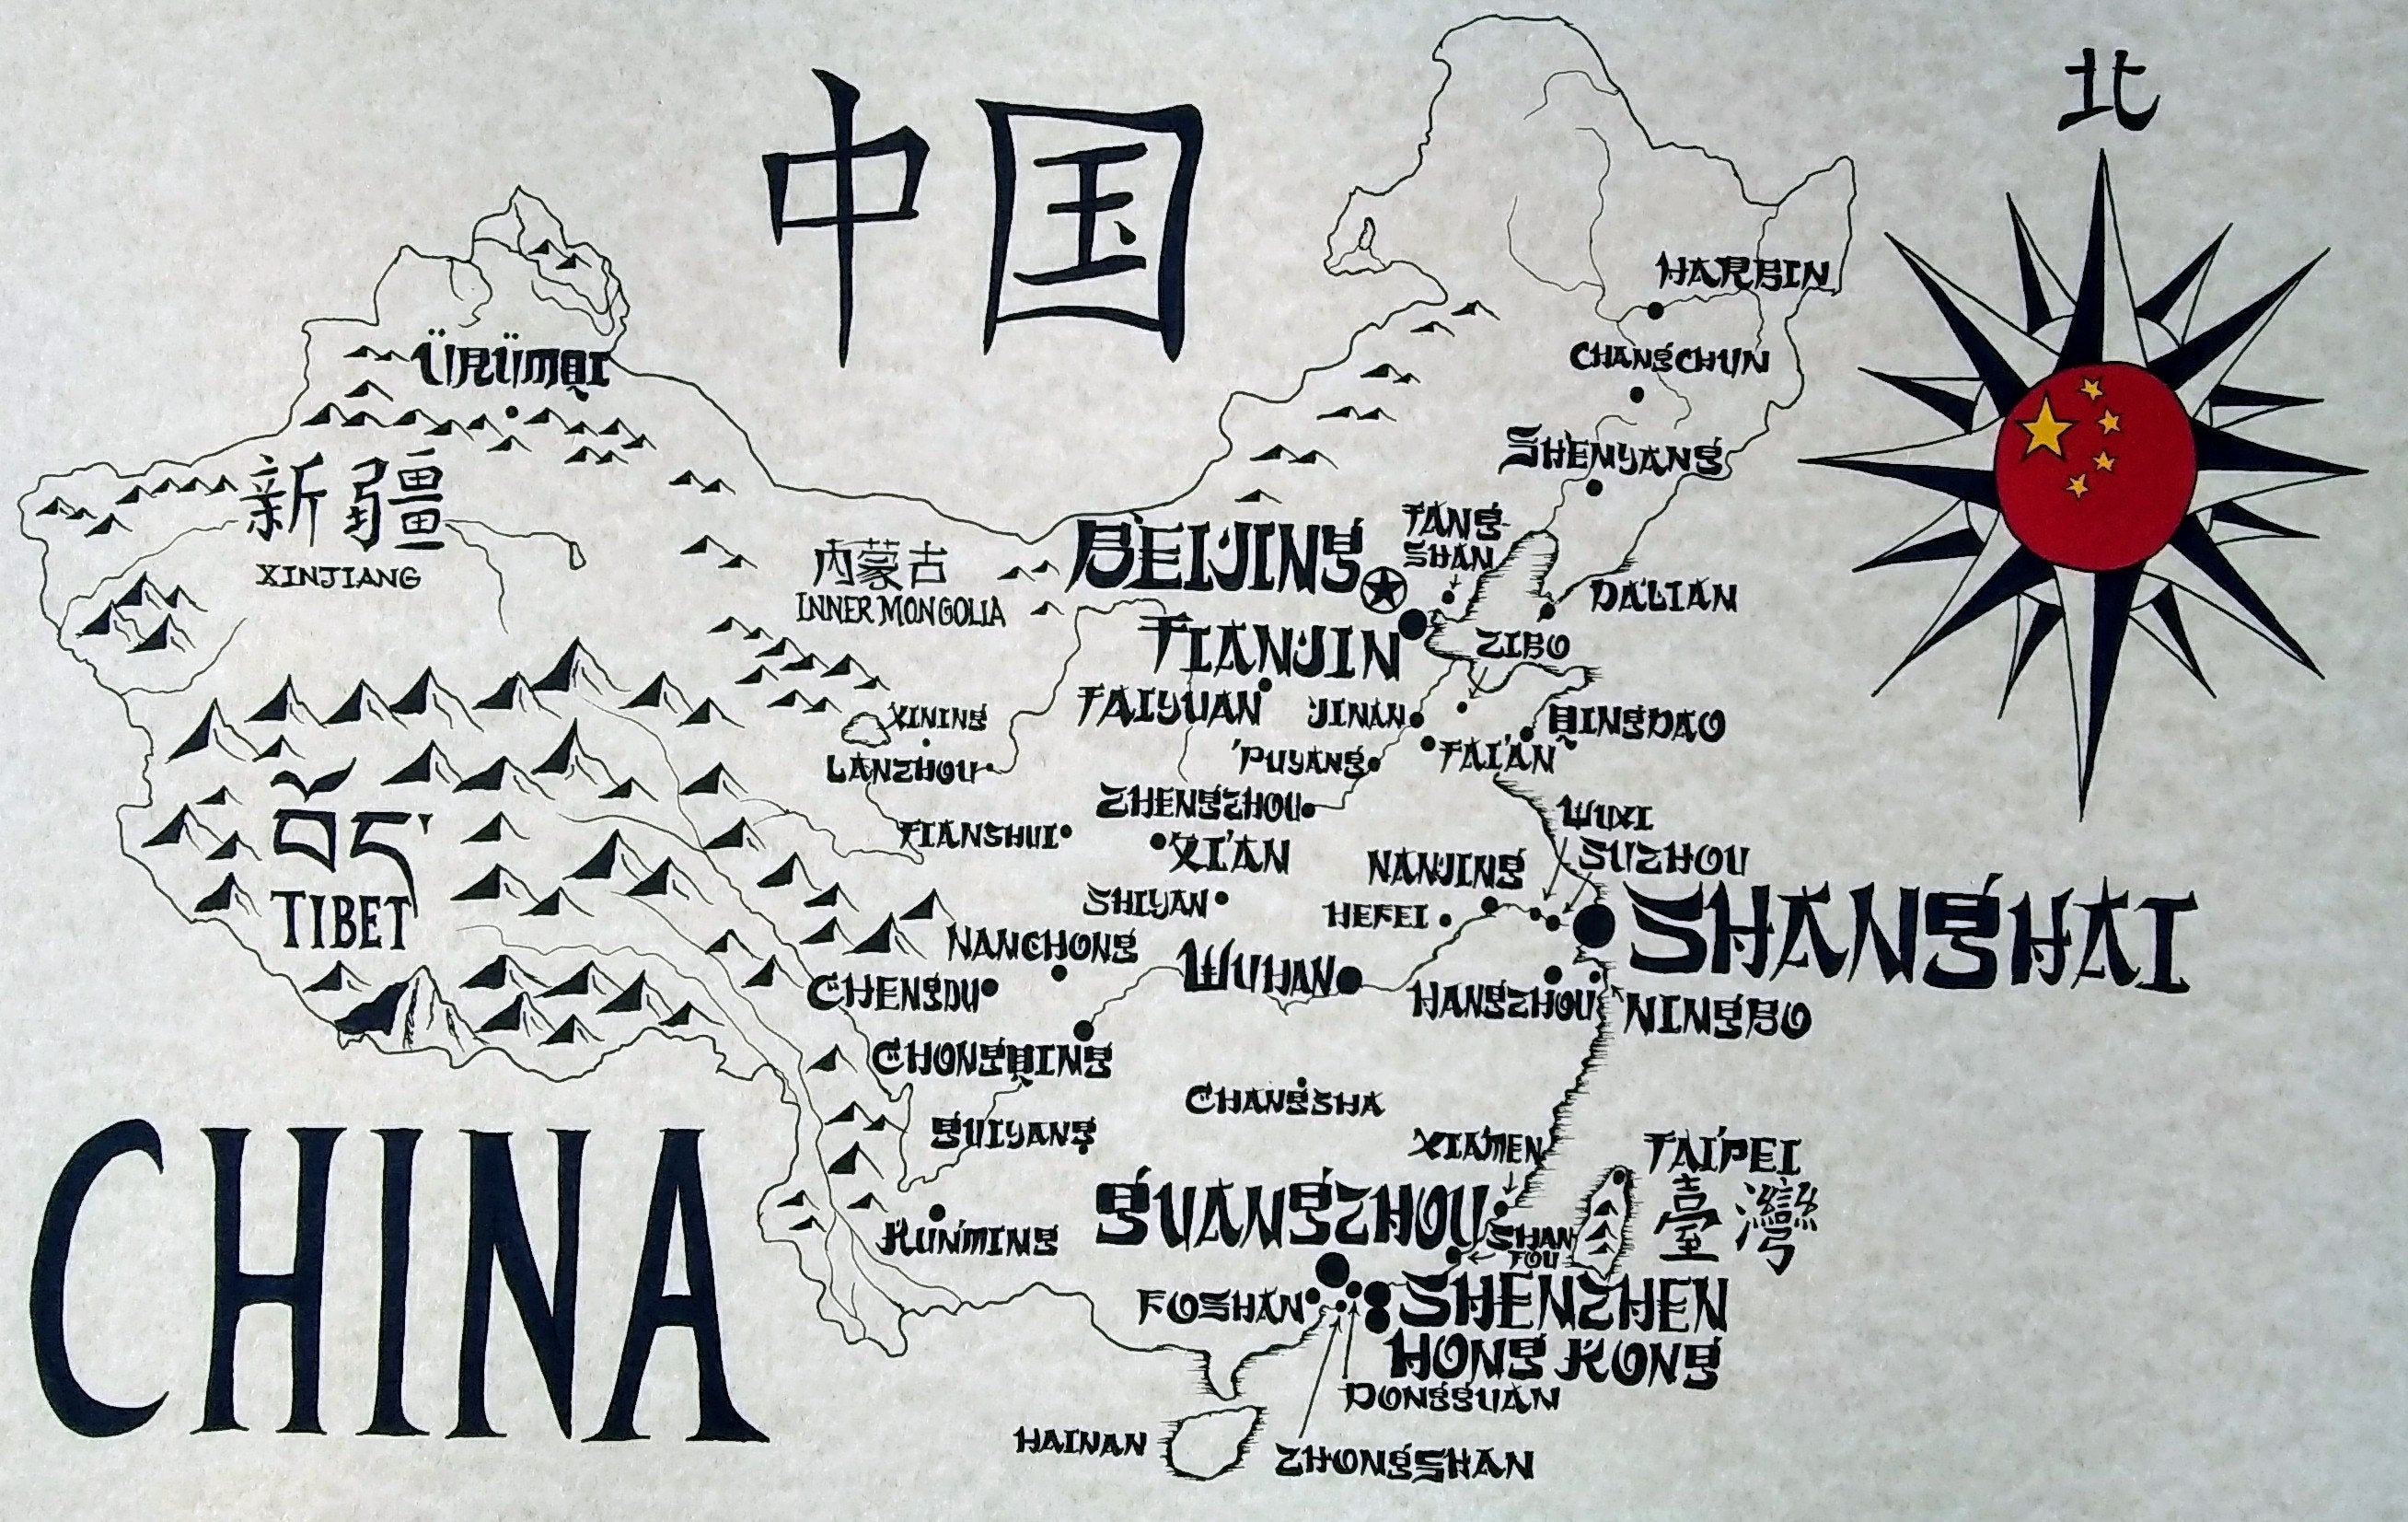 北
中国
HARBIN
ÜRÜMQI
CHANGCHUN
SHENYANG
新疆
XINJIANG
内蒙古
INNER MONGOLIA
BEIJING
TANG
SHAN
DALIAN
TIANJIN
ZIBO
XINING
TAIYUAN
JINAN
QINGDAO
LANZHOU
PUYANG
TAI'AN
བོད་
TIBET
ZHENGZHOU
WUXI
TIANSHUI
XI'AN
NANJING
SUZHOU
SHIYAN
HEFEI
SHANGHAI
NANCHONG
CHENGDU
WUHAN
HANGZHOU
NINGBO
CHONGQING
CHANGSHA
GUIYANG
XIAMEN
TAIPEI
臺灣
GUANGZHOU
KUNMING
SHAN
TOU
FOSHAN
SHENZHEN
HONG KONG
DONGGUAN
HAINAN
ZHONGSHAN
CHINA